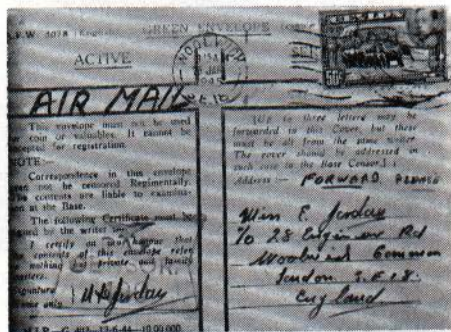 A.F.W. 3078 GREEN ENVELOPE
ACTIVE
WOOLWICH
1945
S.E.18
CEYLON
50c
AIR MAIL
This envelope must not be used
for coin or valuables. It cannot be
accepted for registration.
NOTE:—
Correspondence in this envelope
need not be censored Regimentally.
The contents are liable to examina-
tion at the Base.
The following Certificate must be
signed by the writer:—
I certify on my honour that
the contents of this envelope refer
to nothing but private and family
matters.
Signature
Name only
[Up to three letters may be
forwarded in this Cover, but these
must be all from the same writer.
The cover should be addressed in
such case to the Base Censor.]
Address:— FORWARD PLEASE
Miss E. Jorday
c/o 28 Engineer Rd
Woolwich Common
London S.E.18.
England